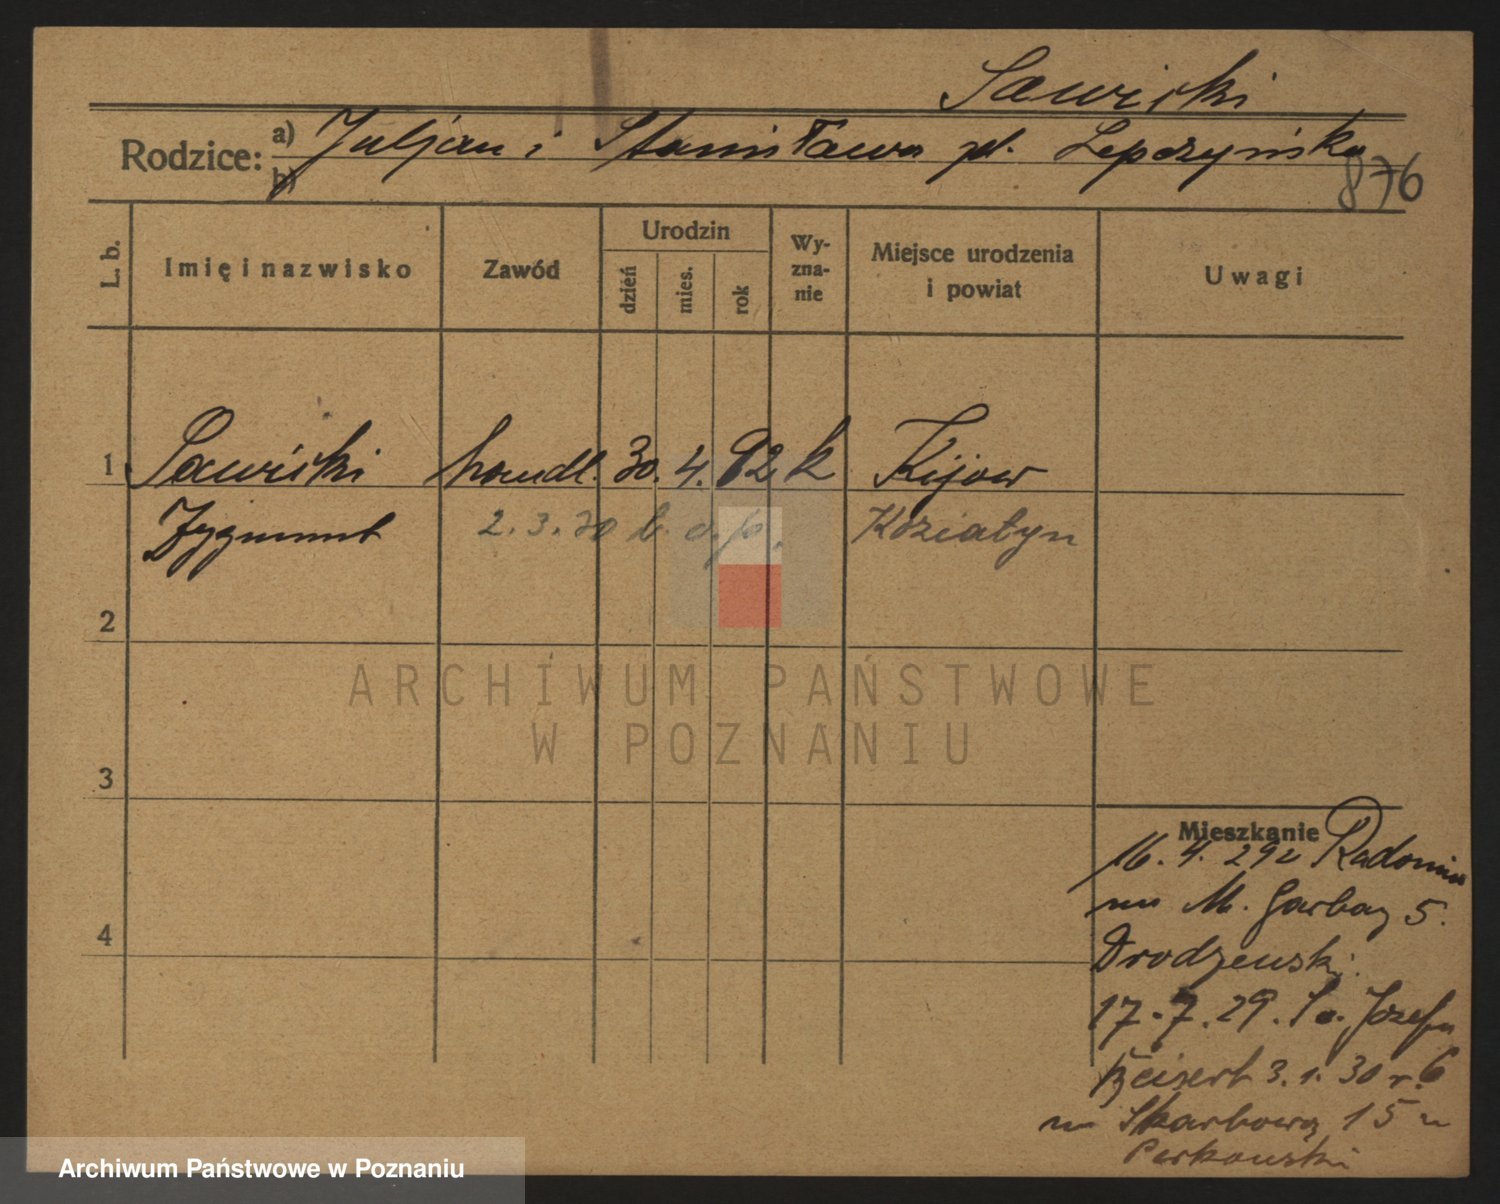 Sawicki
Rodzice: a) Juljan i Stanisława pł. Lepczyńska
b)
876
L. b.
Imię i nazwisko
Zawód
Urodzin
dzień
mies.
rok
Wy-
zna-
nie
Miejsce urodzenia
i powiat
Uwagi
1 Sawicki handl. 30. 4. 92 k Kijow
Zygmunt 2. 3. 30 b. o. p. Koziatyn
2
ARCHIWUM PAŃSTWOWE
W POZNANIU
3
Mieszkanie
16. 4. 29 z Radomia
na M. Garbary 5.
Drodzewski.
17. 7. 29. Św. Józefa
6
3. 1. 30 r.
na Skarbową 15 u
Perkowski
4
Archiwum Państwowe w Poznaniu